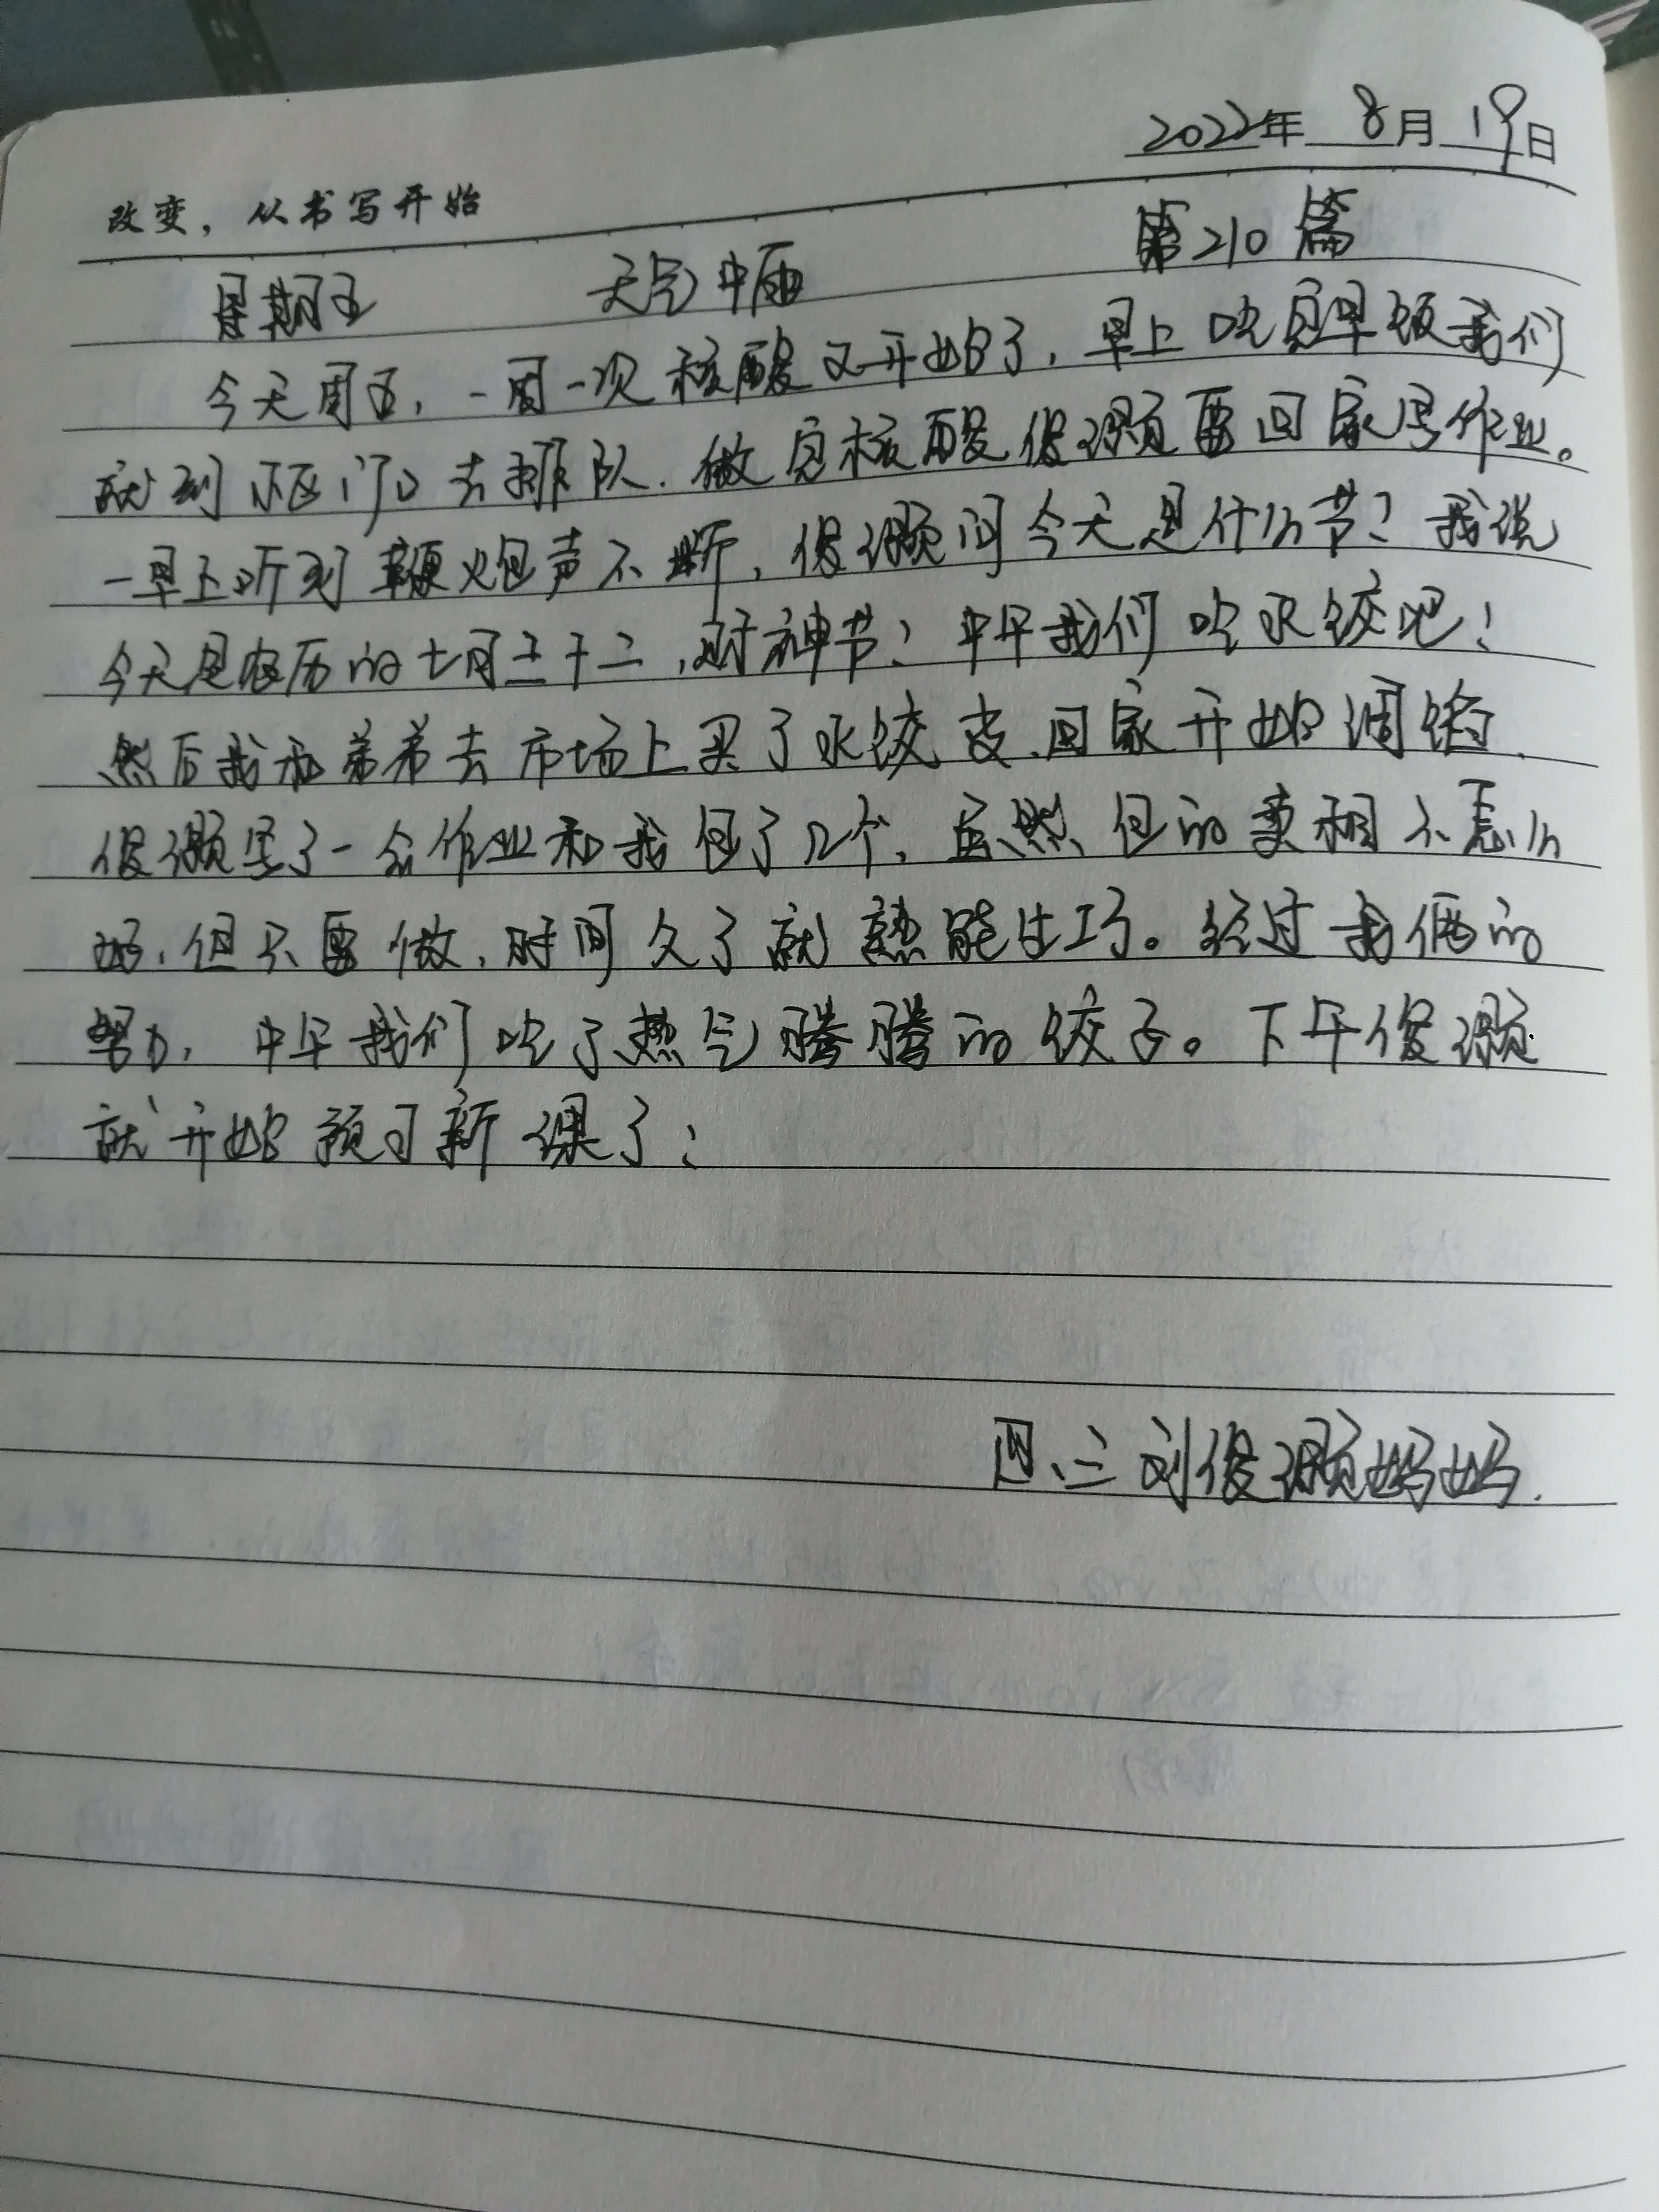 2022年 8月 19日
改变，从书写开始
第210篇
星期五 天气中雨
今天周五，一周一次核酸又开始了，早上吃完早饭我们
就到小区门口去排队.做完核酸俊灏要回家写作业。
一早上听到鞭炮声不断，俊灏问今天是什么节？我说
今天是农历的七月二十二，财神节！中午我们吃水饺吧！
然后我和弟弟去市场上买了水饺皮、回家开始调馅、
俊灏写了一会作业和我包了几个，虽然包的卖相不怎么
好，但只要做，时间久了就熟能生巧。经过我俩的
努力，中午我们吃了热气腾腾的饺子。下午俊灏
就开始预习新课了！
四、三刘俊灏妈妈.